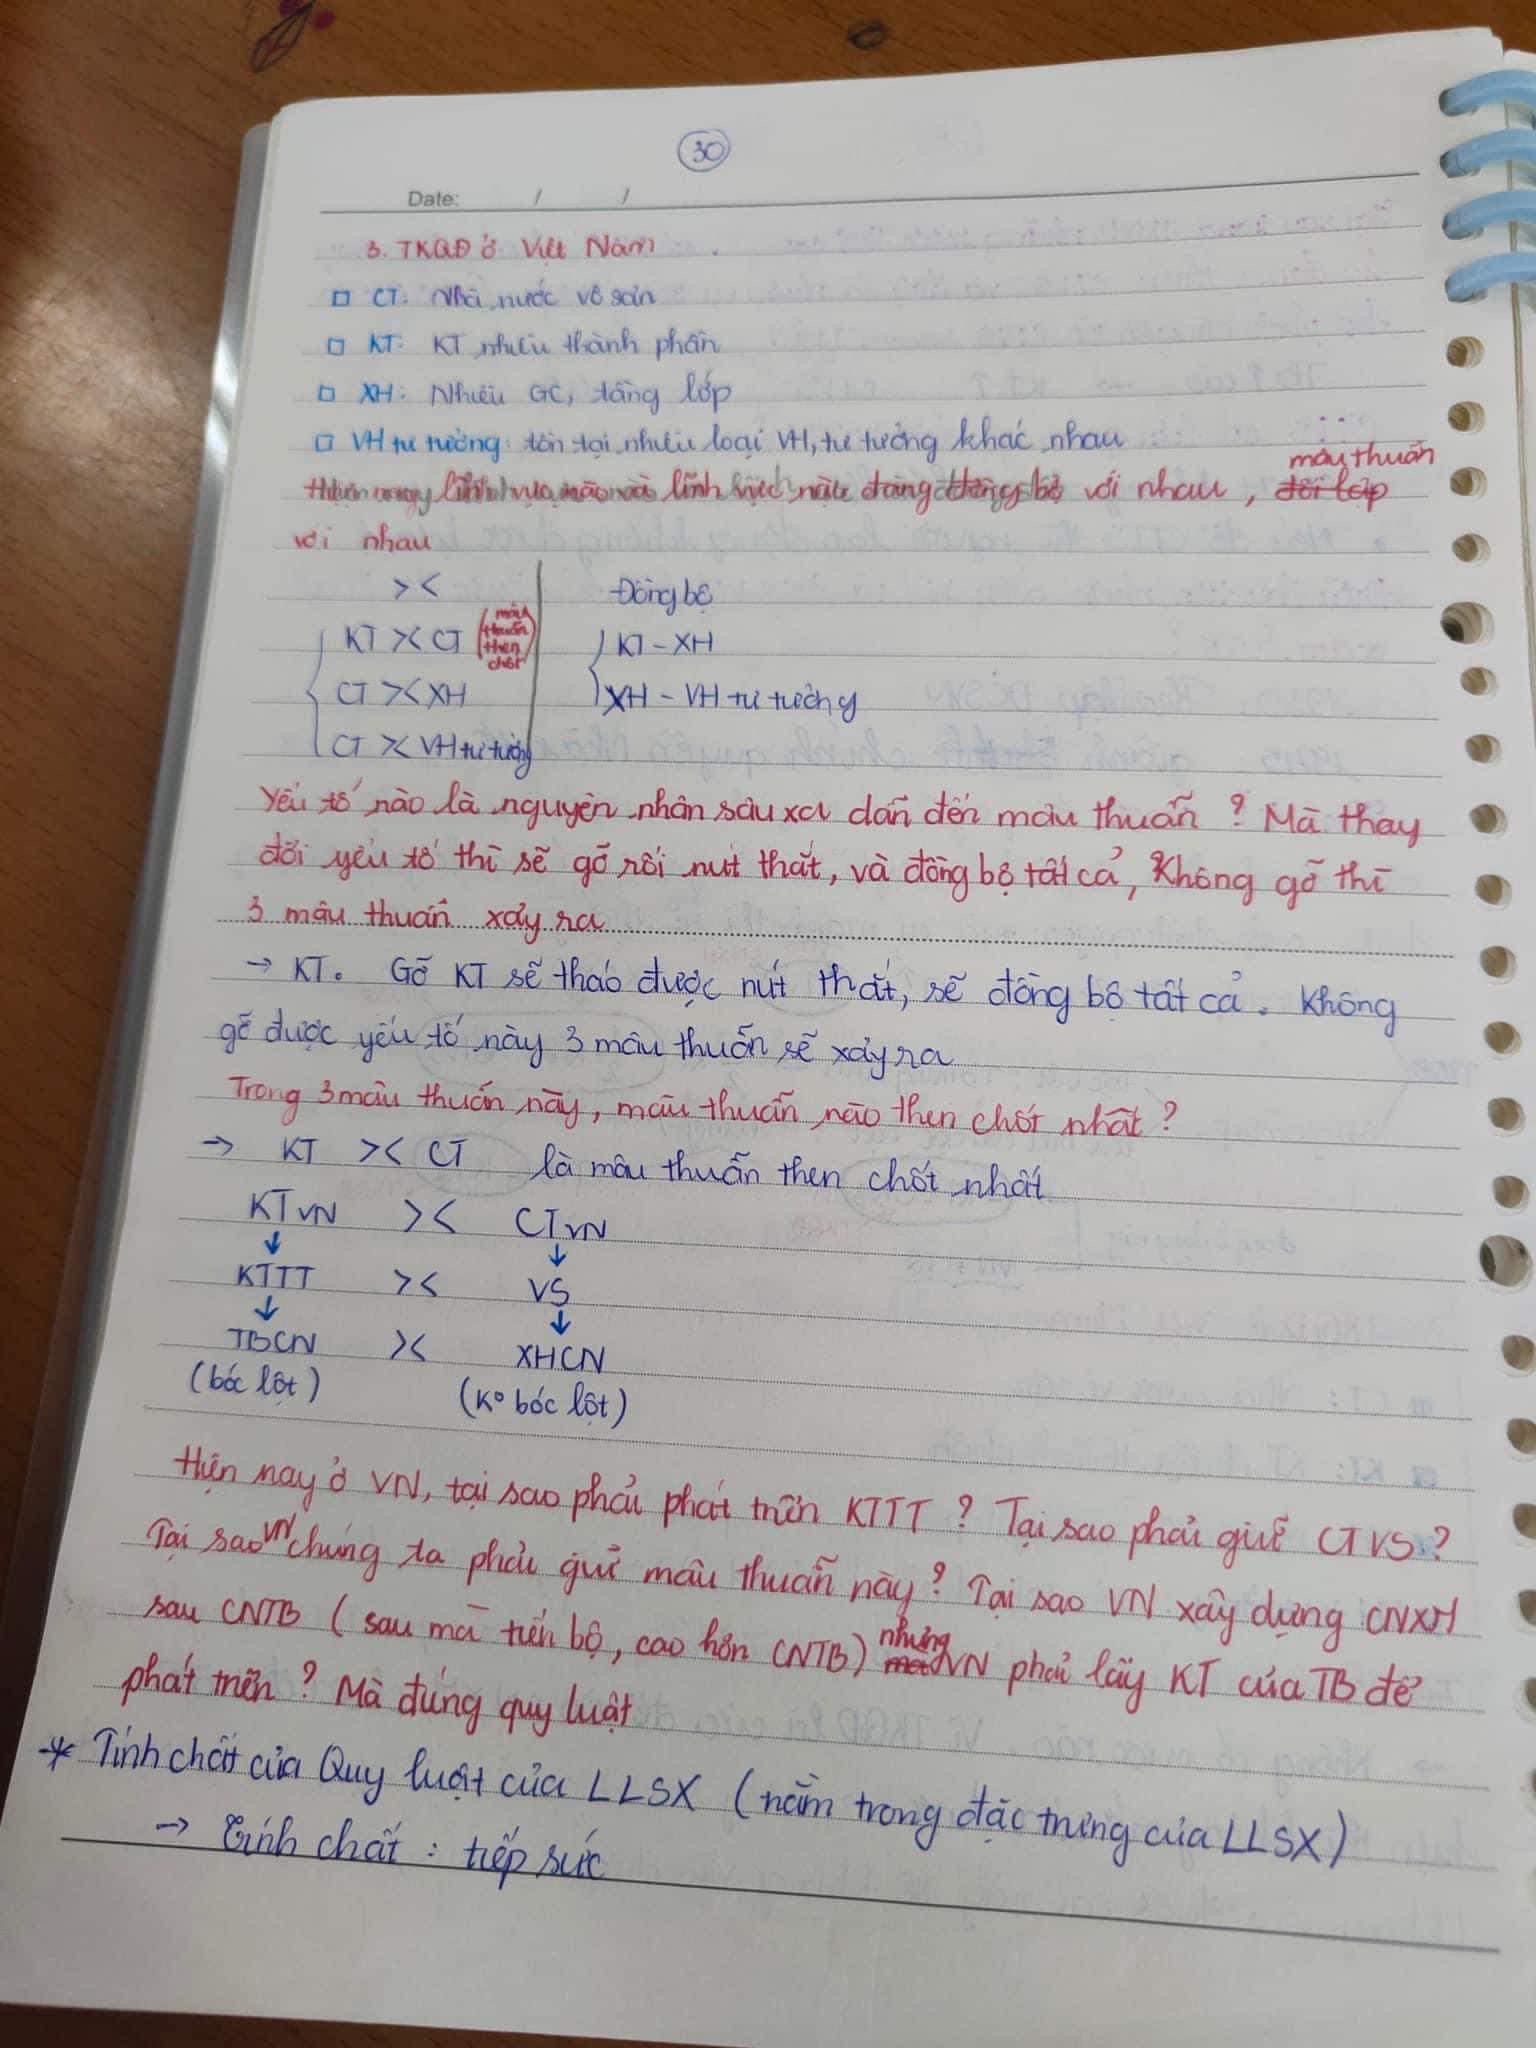 30
Date: / /
3. TKQĐ ở Việt Nam
CT: Nhà nước vô sản
KT: KT nhiều thành phần
XH: Nhiều GC, tầng lớp
VH tư tưởng: tồn tại nhiều loại VH, tư tưởng khác nhau
lĩnh vực nào và lĩnh vực nào đang đồng bộ với nhau, đối lập mâu thuẫn
với nhau
>< Đồng bộ
KT >< CT (mâu thuẫn then chốt) KT - XH
CT >< XH XH - VH tư tưởng
CT >< VH tư tưởng
Yếu tố nào là nguyên nhân sâu xa dẫn đến mâu thuẫn? Mà thay
đổi yếu tố thì sẽ gỡ rối nút thắt, và đồng bộ tất cả, Không gỡ thì
3 mâu thuẫn xảy ra
→ KT. Gỡ KT sẽ tháo được nút thắt, sẽ đồng bộ tất cả. Không
gỡ được yếu tố này 3 mâu thuẫn sẽ xảy ra
Trong 3 mâu thuẫn này, mâu thuẫn nào then chốt nhất?
→ KT >< CT là mâu thuẫn then chốt nhất
KTVN >< CTVN
↓ ↓
KTTT >< VS
↓ ↓
TBCN >< XHCN
(bóc lột) (K° bóc lột)
Hiện nay ở VN, tại sao phải phát triển KTTT? Tại sao phải giữ CTVS?
Tại sao VN chúng ta phải giữ mâu thuẫn này? Tại sao VN xây dựng CNXH
sau CNTB (sau mà tiến bộ, cao hơn CNTB) nhưng VN phải lấy KT của TB để
phát triển? Mà đúng quy luật
* Tính chất của Quy luật của LLSX (nằm trong đặc trưng của LLSX)
→ Tính chất: tiếp sức